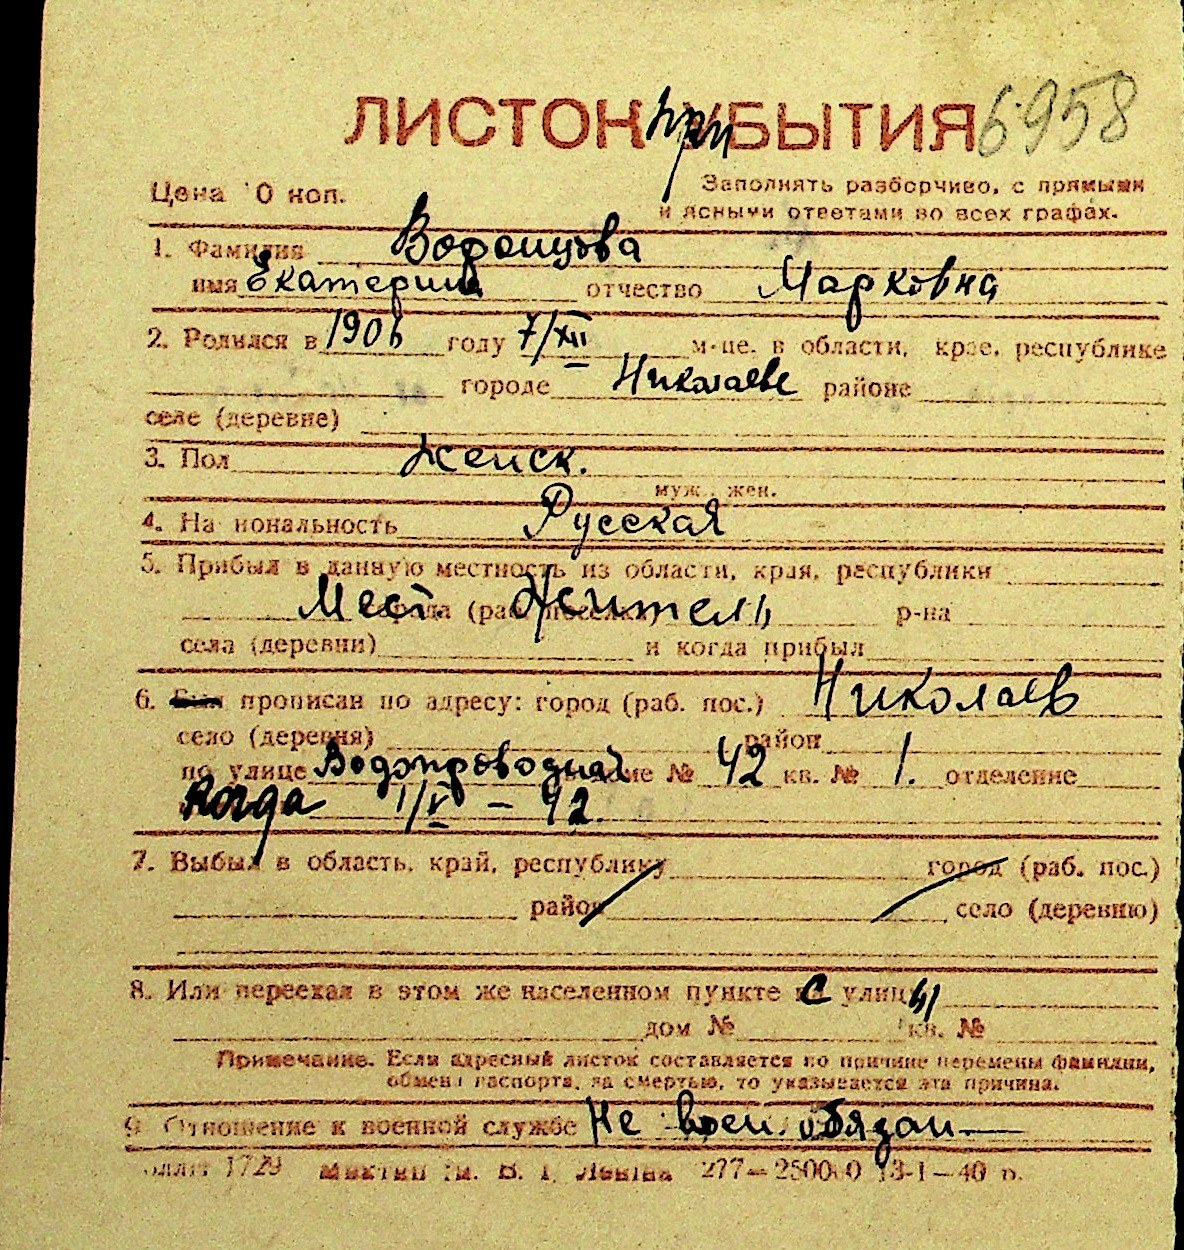 ЛИСТОК при УБЫТИЯ 6958
Цена 10 коп. Заполнять разборчиво, с прямыми
и ясными ответами во всех графах.
1. Фамилия Воронцова
имя Екатерина отчество Марковна
2. Родился в 1906 году 7/XII м-це, в области, крае, республике
городе Николаеве районе
селе (деревне)
3. Пол женск.
муж., жен.
4. Национальность Русская
5. Прибыл в данную местность из области, края, республики
Мест. житель города (раб. поселка) р-на
села (деревни) и когда прибыл
6. Был прописан по адресу: город (раб. пос.) Николаев
село (деревня) район
по улице Водопроводная № 42 кв. № 1. отделение
Когда 1/V – 42.
7. Выбыл в область, край, республику город (раб. пос.)
район село (деревню)
8. Или переехал в этом же населенном пункте с улицы
дом № кв. №
Примечание. Если адресный листок составляется по причине перемены фамилии,
обмена паспорта, за смертью, то указывается эта причина.
9. Отношение к военной службе Не воен. обязан
1729 им. В. І. Леніна 277—250000 13-1—40 р.